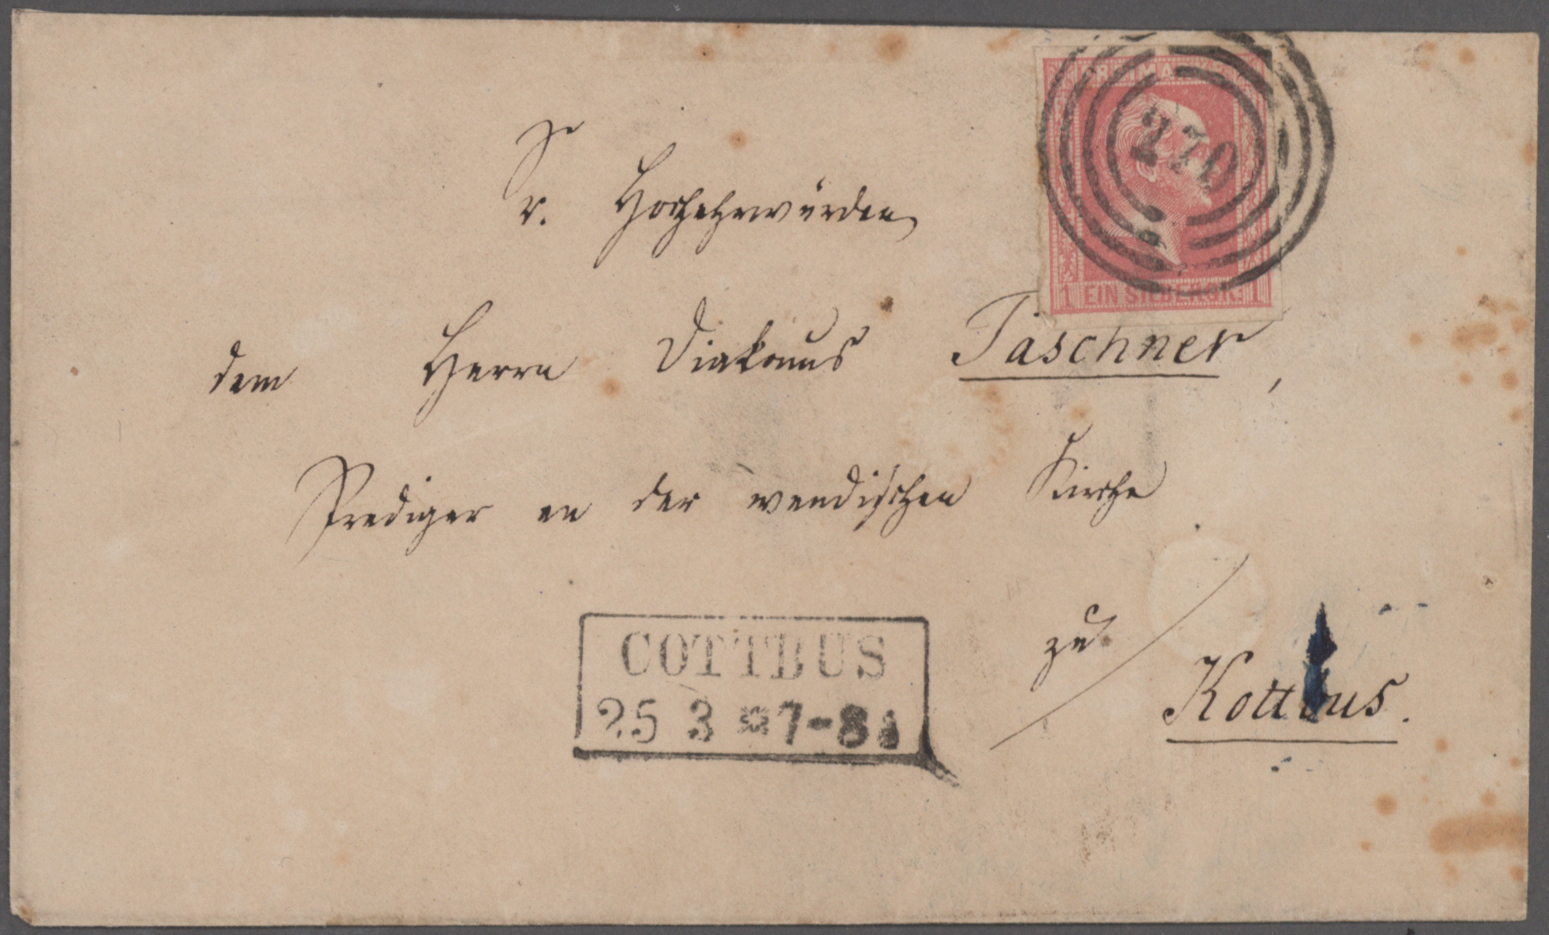 FREIMARKE
270
1 EIN SILBERGR. 1
Sr. Hochehrwürden
dem Herrn Diakonus Taschner,
Prediger an der wendischen Kirche
zu
Kottbus.
COTTBUS
25 3 * 7-8